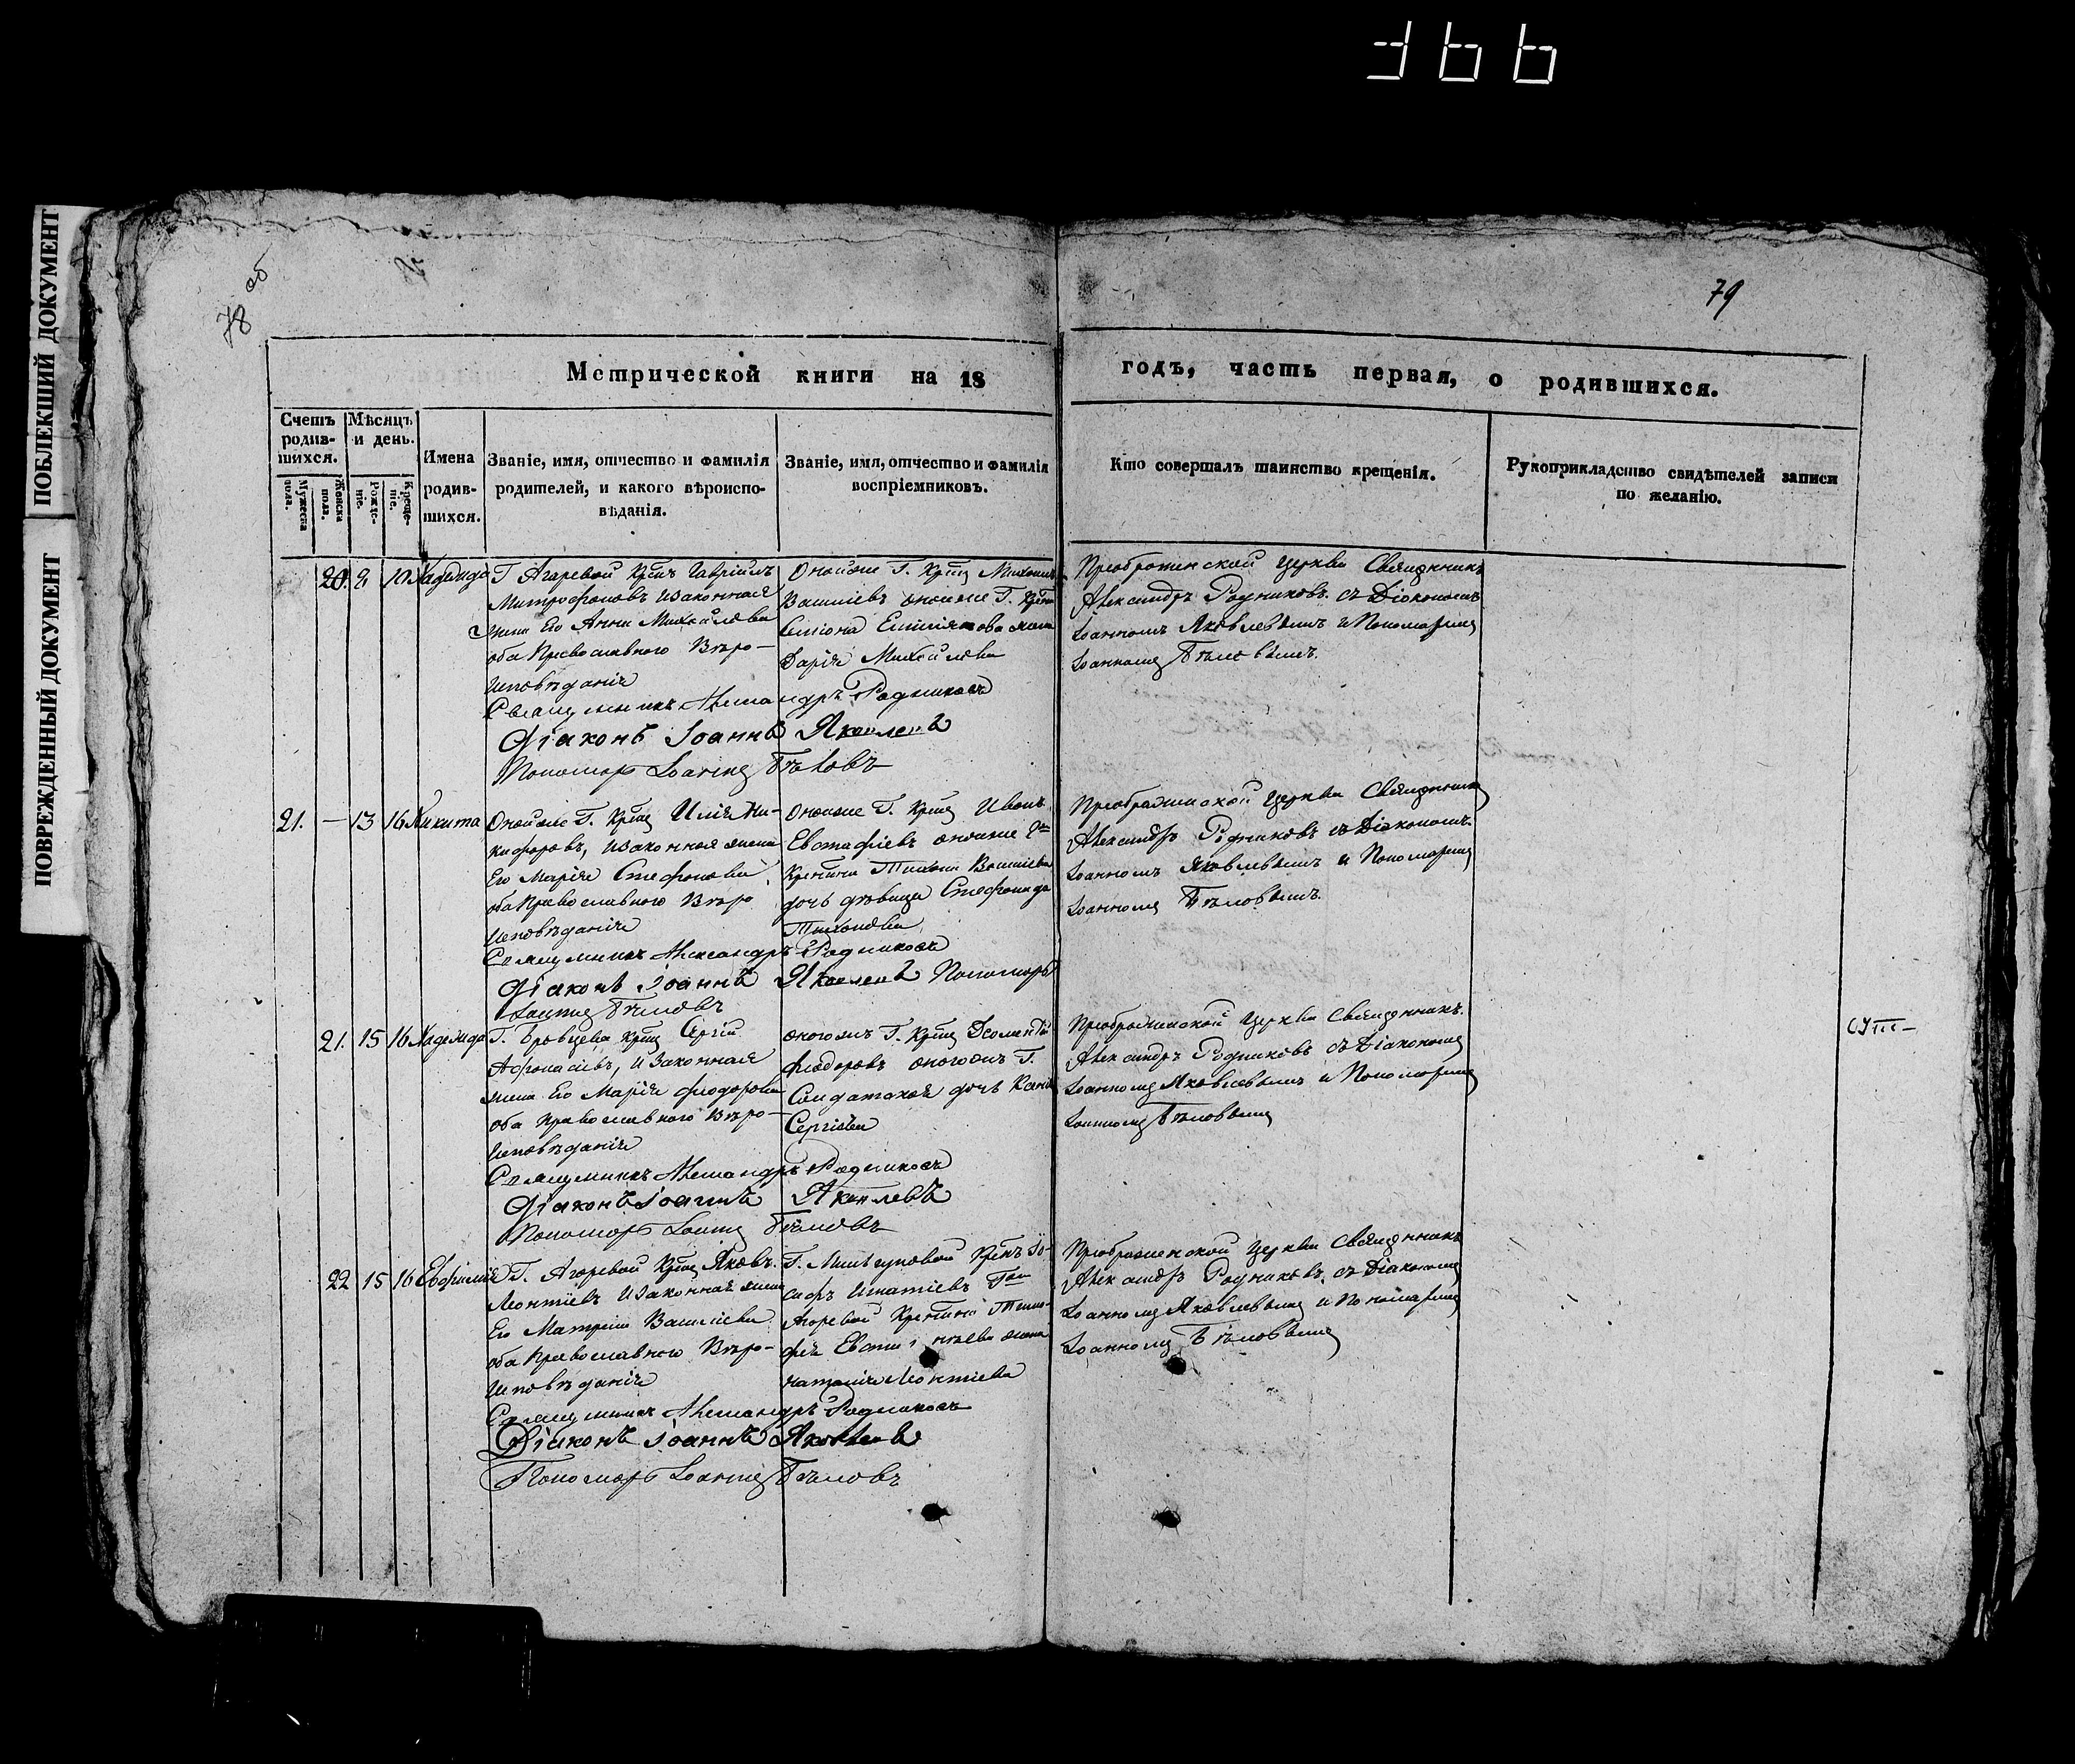 366
ПОБЛЕКШИЙ ДОКУМЕНТ
ПОВРЕЖДЕННЫЙ ДОКУМЕНТ
78 об
79
Метрической книги на 18 годъ, часть первая, о родившихся.
Счетъ родив-шихся.
Мужеска пола.
Женска пола.
Мѣсяцъ и день.
Рожде-ніе.
Креще-ніе.
Имена родив-шихся.
Званіе, имя, отчество и фамилія
родителей, и какого вѣроиспо-
вѣданія.
Званіе, имя, отчество и фамилія
воспріемниковъ.
Кто совершалъ таинство крещенія.
Рукоприкладство свидѣтелей записи
по желанію.
20. 8 10 Надежда
Г. Агаревой Крѣнъ Гавріилъ
Митрофановъ и законная
жена Его Анна Михайлова
оба Православного Вѣро-
исповѣданія
Онойже Г. Крѣнъ Михаилъ
Васильевъ онойже Г.
Симiона жена
Дарія Михайлова
Преображенской Церкви Священникъ
Александръ Родниковъ съ Діакономъ
Іоанномъ Яковлевымъ и Пономаремъ
Іоанномъ Бѣловымъ.
Священникъ Александръ Родниковъ
Діаконъ Іоаннъ Яковлевъ
Пономарь Іоаннъ Бѣловъ
21. — 13 16 Никита
Онойже Г. Крѣнъ Илія Ни-
кифоровъ, и законная жена
Его Марія Стефанова,
оба Православного Вѣро
исповѣданія
Онойже Г. Крѣнъ Иванъ
Евстафіевъ онойже Г.
Тихона Васильева
дочь дѣвица Стефанида
Тихонова
Преображенской Церкви Священникъ
Александръ Родниковъ съ Діакономъ
Іоанномъ Яковлевымъ и Пономаремъ
Іоанномъ Бѣловымъ.
Священникъ Александръ Родниковъ
Діаконъ Іоаннъ Яковлевъ Пономарь
Іоаннъ Бѣловъ
21. 15 16 Надежда
Г. Бровцева Крѣнъ Сергій
Афонасіевъ, и законная
жена Его Марія Феодорова
оба Православного Вѣро-
исповѣданія
оногожъ Г. Крѣнъ
Феодоровъ оногожъ Г.
Солдатская дочь
Сергіева
Преображенской Церкви Священникъ
Александръ Родниковъ съ Діакономъ
Іоанномъ Яковлевымъ и Пономаремъ
Іоанномъ Бѣловымъ
Священникъ Александръ Родниковъ
Діаконъ Іоаннъ Яковлевъ
Пономарь Іоаннъ Бѣловъ
22 15 16 Евфимія
Г. Агаревой Крѣнъ Яковъ
Леонтіевъ и законная жена
Его Матрона Васильева
оба Православного Вѣро-
исповѣданія
Г. Крѣнъ Іо-
сифъ Игнатіевъ
Тимо-
фея жена
Наталія Леонтіева
Преображенской Церкви Священникъ
Александръ Родниковъ съ Діакономъ
Іоанномъ Яковлевымъ и Пономаремъ
Іоанномъ Бѣловымъ
Священникъ Александръ Родниковъ
Діаконъ Іоаннъ Яковлевъ
Пономарь Іоаннъ Бѣловъ